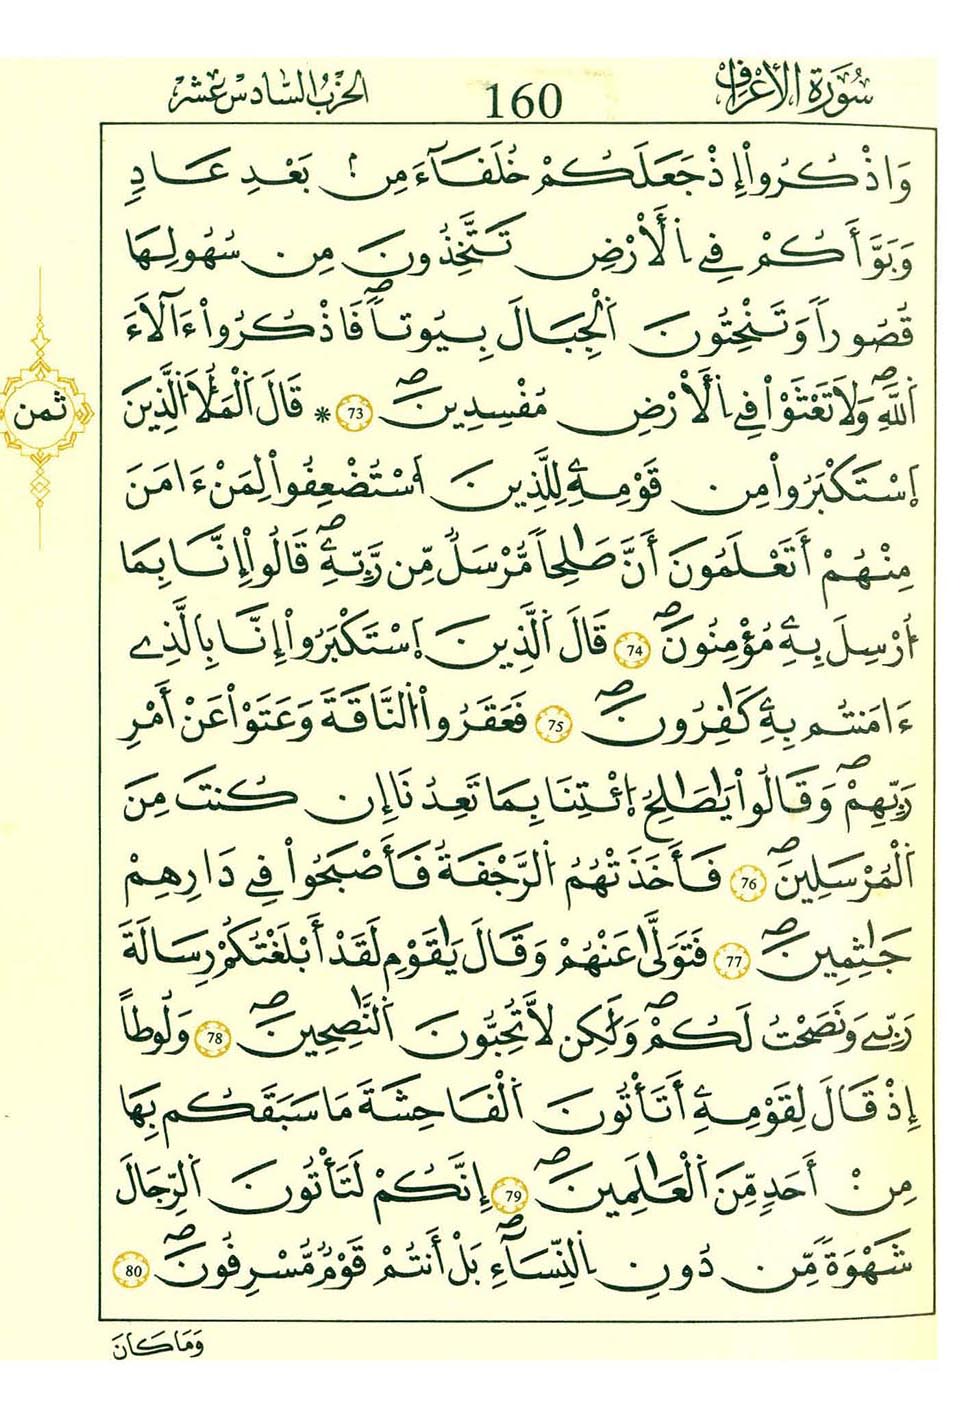 سُورَةُ الأَعْرَافِ
160
الحِزْبُ السَّادِسَ عَشَرَ
وَاذْكُرُواْ إِذْ جَعَلَكُمْ خُلَفَآءَ مِنۢ بَعْدِ عَادٖ
وَبَوَّأَكُمْ فِے اِ۬لْأَرْضِ تَتَّخِذُونَ مِن سُهُولِهَا
قُصُوراٗ وَتَنْحِتُونَ اَ۬لْجِبَالَ بِيُوتاٗۖ فَاذْكُرُواْ ءَالَآءَ
اَ۬للَّهِۖ وَلَا تَعْثَوْاْ فِے اِ۬لْأَرْضِ مُفْسِدِينَۖ 73 * قَالَ اَ۬لْمَلَأُ اُ۬لذِينَ
ثمن
اَ۪سْتَكْبَرُواْ مِن قَوْمِهِۦ لِلذِينَ اَ۟سْتُضْعِفُواْ لِمَنْ ءَامَنَ
مِنْهُمْ أَتَعْلَمُونَ أَنَّ صَٰلِحاٗ مُّرْسَلٞ مِّن رَّبِّهِۦۖ قَالُواْ إِنَّا بِمَا
أُرْسِلَ بِهِۦ مُؤْمِنُونَۖ 74 قَالَ اَ۬لذِينَ اَ۪سْتَكْبَرُواْ إِنَّا بِالذِے
ءَامَنتُم بِهِۦ كَٰفِرُونَۖ 75 فَعَقَرُواْ اُ۬لنَّاقَةَ وَعَتَوْاْ عَنْ أَمْرِ
رَبِّهِمْۖ وَقَالُواْ يَٰصَٰلِحُ اُ۪ئْتِنَا بِمَا تَعِدُنَا إِن كُنتَ مِنَ
اَ۬لْمُرْسَلِينَۖ 76 فَأَخَذَتْهُمُ اُ۬لرَّجْفَةُ فَأَصْبَحُواْ فِے دَارِهِمْ
جَٰثِمِينَۖ 77 فَتَوَلَّىٰ عَنْهُمْ وَقَالَ يَٰقَوْمِ لَقَدْ أَبْلَغْتُكُمْ رِسَالَةَ
رَبِّے وَنَصَحْتُ لَكُمْۖ وَلَٰكِن لَّا تُحِبُّونَ اَ۬لنَّٰصِحِينَۖ 78 وَلُوطاً
إِذْ قَالَ لِقَوْمِهِۦ أَتَأْتُونَ اَ۬لْفَٰحِشَةَ مَا سَبَقَكُم بِهَا
مِنْ أَحَدٖ مِّنَ اَ۬لْعَٰلَمِينَۖ 79 إِنَّكُمْ لَتَأْتُونَ اَ۬لرِّجَالَ
شَهْوَةٗ مِّن دُونِ اِ۬لنِّسَآءِۖ بَلْ أَنتُمْ قَوْمٞ مُّسْرِفُونَۖ 80
وَمَا كَانَ